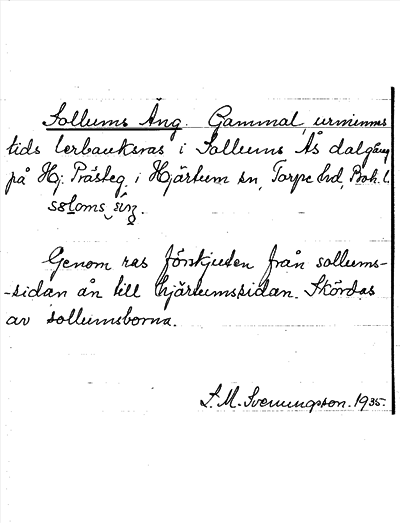 Sollums Äng. Gammal, urminnes
tids lerbanksras i Sollums Ås dalgång
på Hj. Prästeg. i Hjärtum sn, Torpe hd, Boh. l.
Genom ras förskjuten från sollums-
-sidan ån till hjärtumssidan. Skördas
av sollumsborna.
S. M. Svenungson. 1935.